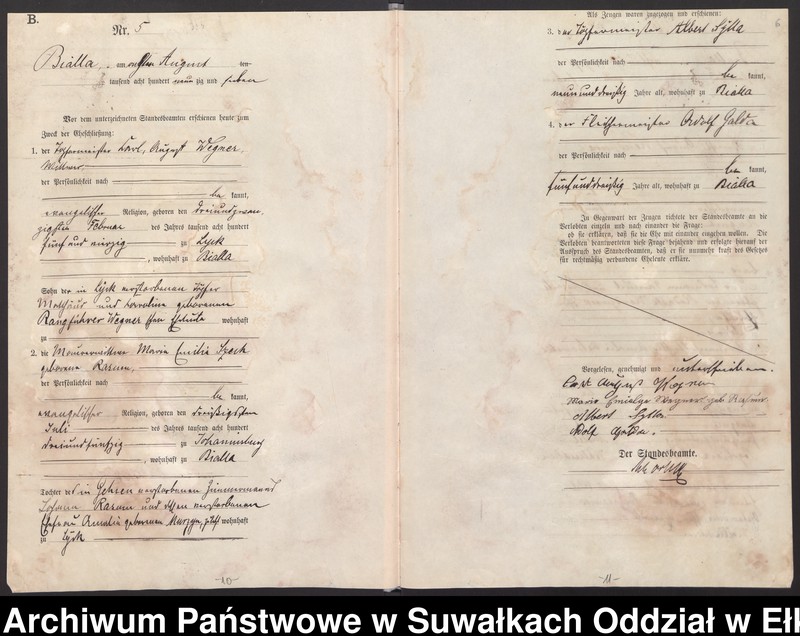 B.
Nr. 5
Bialla, am August
tausend acht hundert neun zig und sieben
Vor dem unterzeichneten Standesbeamten erschienen heute zum
Zweck der Eheschließung:
1. der Töpfermeister Carl, August Wegner,
Wittwer
der Persönlichkeit nach
be kannt,
evangelischer Religion, geboren den dreiundzwan-
zigsten Februar des Jahres tausend acht hundert
fünf und vierzig zu Lyck
, wohnhaft zu Bialla
Sohn der in Lyck verstorbenen Töpfer
und Caroline geborenen
Wegner schen Eheleute wohnhaft
zu
2. die Maurerwittwe Marie Emilie
geborene Rasum,
der Persönlichkeit nach
be kannt,
evangelischer Religion, geboren den dreißigsten
Juli des Jahres tausend acht hundert
dreiundfünfzig zu Johannisburg
, wohnhaft zu Bialla
Tochter des in Gehsen verstorbenen Zimmermanns
Johann Rasum und dessen verstorbenen
Ehefrau Amalie geborenen wohnhaft
zu Lyck
-10-
Als Zeugen waren zugezogen und erschienen:
6
3. der Töpfermeister Albert Sylla
der Persönlichkeit nach
be kannt,
neununddreißig Jahre alt, wohnhaft zu Bialla
4. der Fleischermeister Adolf
der Persönlichkeit nach
be kannt,
fünfunddreißig Jahre alt, wohnhaft zu Bialla
In Gegenwart der Zeugen richtete der Standesbeamte an die
Verlobten einzeln und nach einander die Frage:
ob sie erklären, daß sie die Ehe mit einander eingehen wollen. Die
Verlobten beantworteten diese Frage bejahend und erfolgte hierauf der
Ausspruch des Standesbeamten, daß er sie nunmehr kraft des Gesetzes
für rechtmäßig verbundene Eheleute erkläre.
Vorgelesen, genehmigt und unterschrieben.
Carl August Wegner
Marie Wegner geb Rasum
Albert Sylla
Adolf
Der Standesbeamte.
-11-
Archiwum Państwowe w Suwałkach Oddział w Ełk